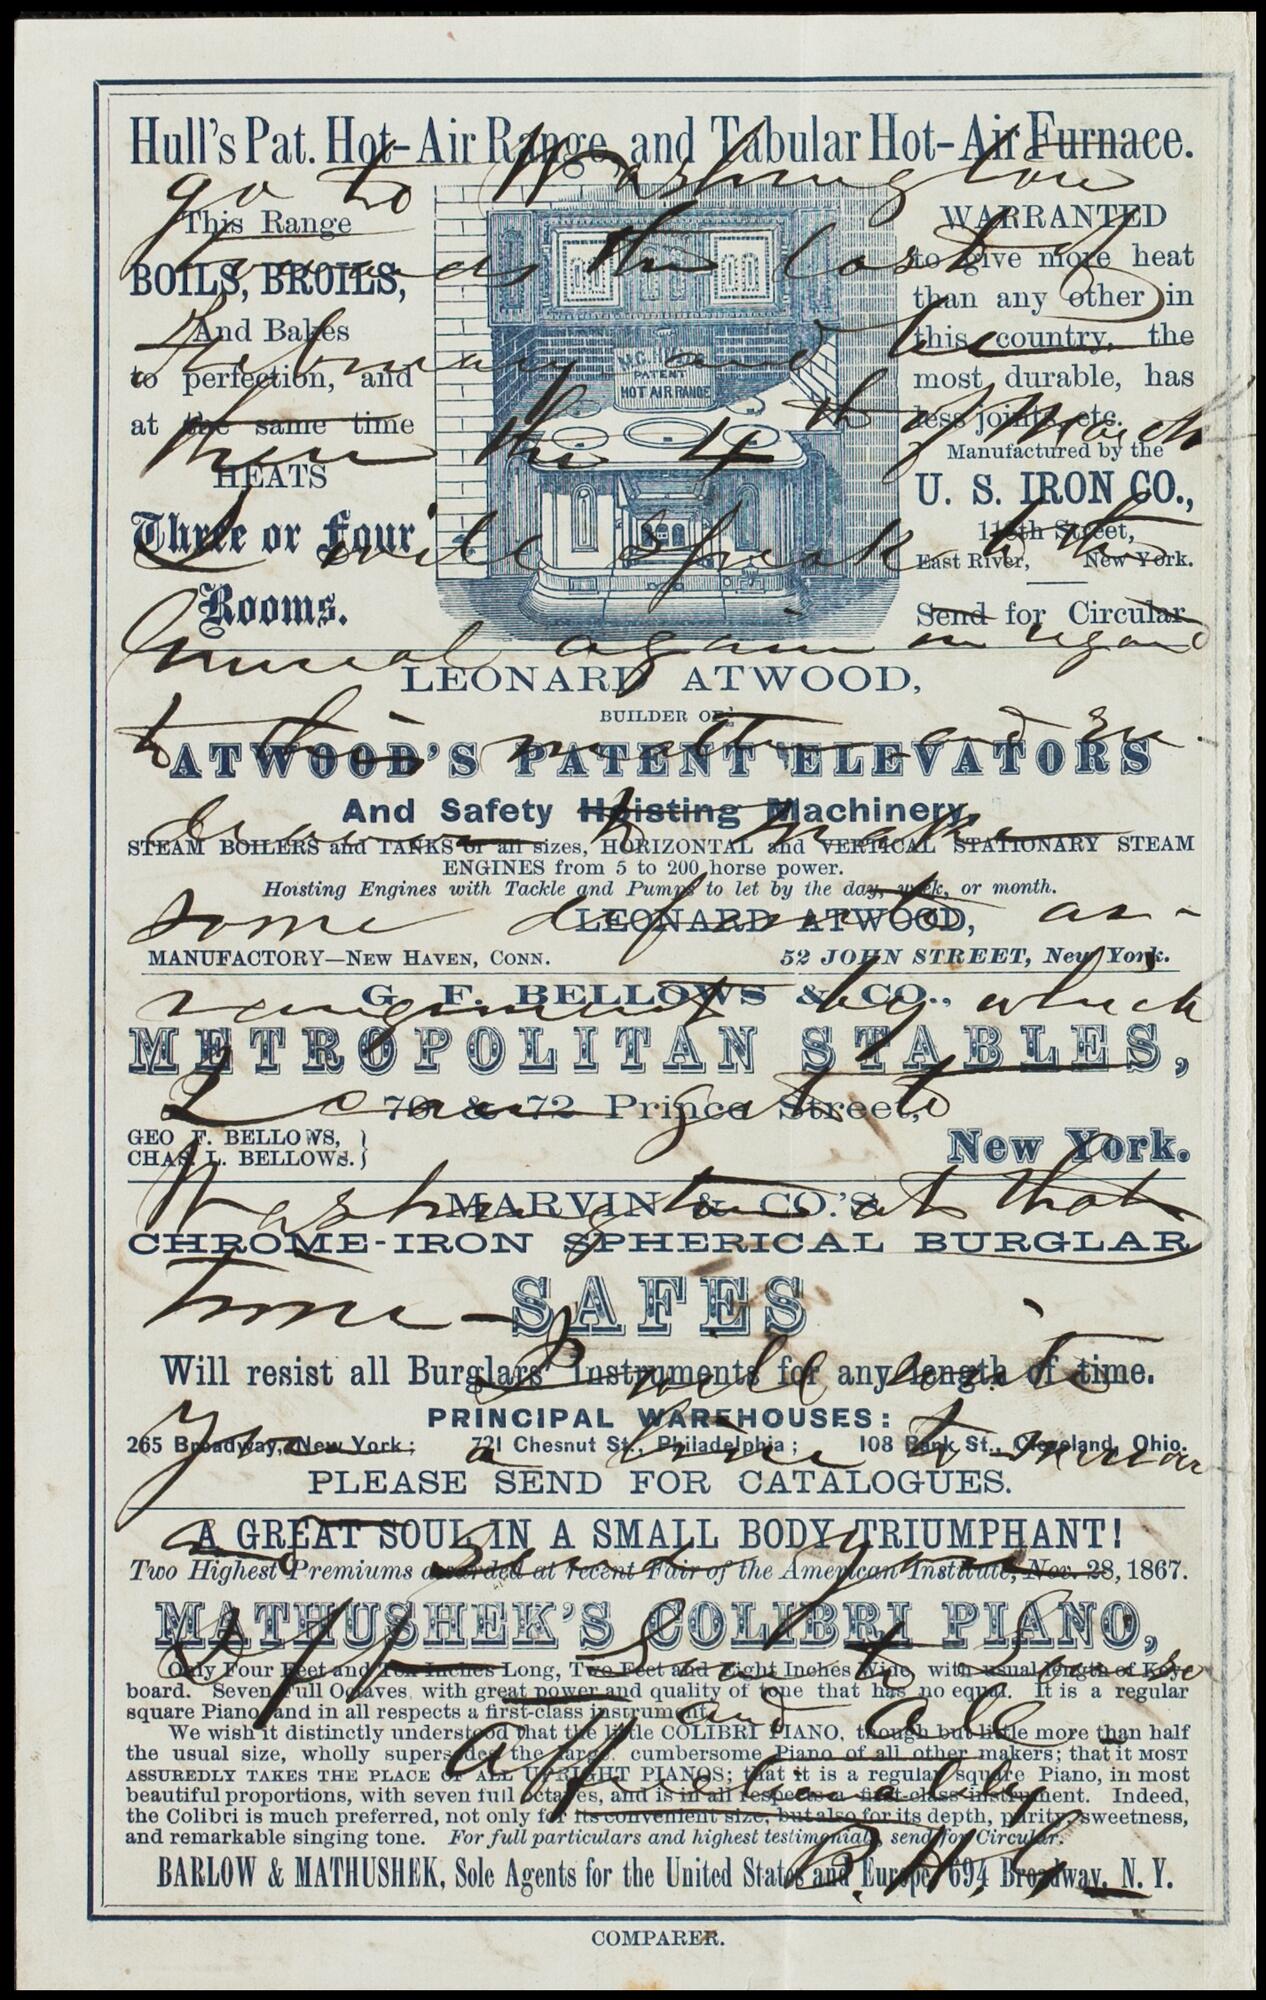 Hull's Pat. Hot-Air Range and Tubular Hot-Air Furnace.
This Range
BOILS, BROILS,
And Bakes
to perfection, and
at the same time
HEATS
Three or Four
Rooms.
PATENT
HOT AIR RANGE
WARRANTED
to give more heat
than any other in
this country, the
most durable, has
less joints, etc.
Manufactured by the
U. S. IRON CO.,
Street,
East River, New York.
Send for Circular
LEONARD ATWOOD,
BUILDER OF
ATWOOD'S PATENT ELEVATORS
And Safety Hoisting Machinery,
STEAM BOILERS and TANKS of all sizes, HORIZONTAL and VERTICAL STATIONARY STEAM
ENGINES from 5 to 200 horse power.
Hoisting Engines with Tackle and Pumps to let by the day, week, or month.
LEONARD ATWOOD,
MANUFACTORY—NEW HAVEN, CONN. 52 JOHN STREET, New York.
G. F. BELLOWS & CO.,
METROPOLITAN STABLES,
70 & 72 Prince Street,
GEO F. BELLOWS, }
CHAS. L. BELLOWS. }
New York.
MARVIN & CO.'S
CHROME-IRON SPHERICAL BURGLAR
SAFES
Will resist all Burglars' Instruments for any length of time.
PRINCIPAL WAREHOUSES:
265 Broadway, New York; 721 Chesnut St., Philadelphia; 108 Bank St., Cleveland, Ohio.
PLEASE SEND FOR CATALOGUES.
A GREAT SOUL IN A SMALL BODY TRIUMPHANT!
Two Highest Premiums awarded at recent Fair of the American Institute, Nov. 28, 1867.
MATHUSHEK'S COLIBRI PIANO,
Only Four Feet and Ten Inches Long, Two Feet and Eight Inches Wide, with usual length of Key-
board. Seven Full Octaves, with great power and quality of tone that has no equal. It is a regular
square Piano, and in all respects a first-class instrument.
We wish it distinctly understood that the little COLIBRI PIANO, though but little more than half
the usual size, wholly supersedes the large, cumbersome Piano of all other makers; that it MOST
ASSUREDLY TAKES THE PLACE OF ALL UPRIGHT PIANOS; that it is a regular square Piano, in most
beautiful proportions, with seven full octaves, and is in all respects a first-class instrument. Indeed,
the Colibri is much preferred, not only for its convenient size, but also for its depth, purity, sweetness,
and remarkable singing tone. For full particulars and highest testimonials, send for Circular.
BARLOW & MATHUSHEK, Sole Agents for the United States and Europe, 694 Broadway, N. Y.
COMPARER.
go to Washington
towards the last of
February and be
there the 4th of March
I will speak to the
General again in regard
to this matter and en-
deavor to make
some definite ar-
rangement by which
I can get to
Washington at that
time— I will write
you a line to-morrow
and send you
Love to Louise
and all
affectionately
B. H. G.